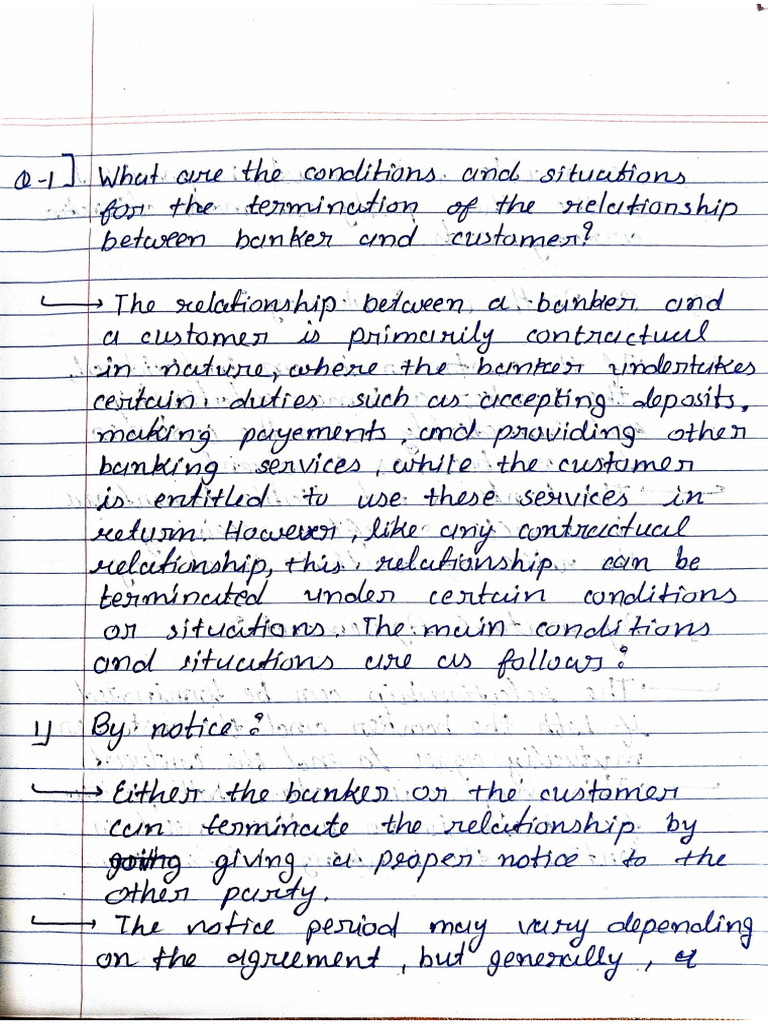 Q-1] What are the conditions and situations
for the termination of the relationship
between banker and customer?
→ The relationship between a banker and
a customer is primarily contractual
in nature, where the banker undertakes
certain duties such as accepting deposits,
making payements, and providing other
banking services, while the customer
is entitled to use these services in
return. However, like any contractual
relationship, this relationship can be
terminated under certain conditions
or situations. The main conditions
and situations are as follows:
1) By notice:
→ Either the banker or the customer
can terminate the relationship by
giving a proper notice to the
other party.
→ The notice period may vary depending
on the agreement, but generally, a